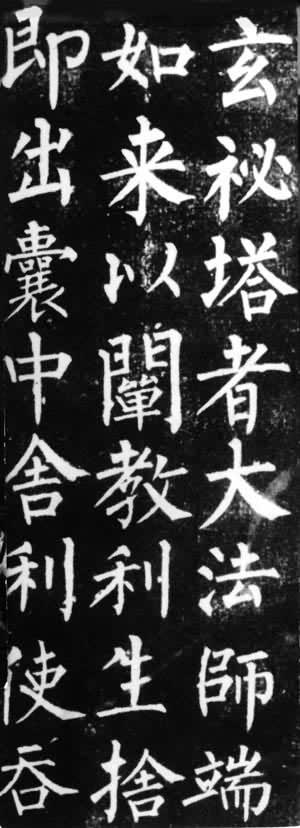 玄祕塔者大法師端
如来以闡教利生捨
即出囊中舍利使吞